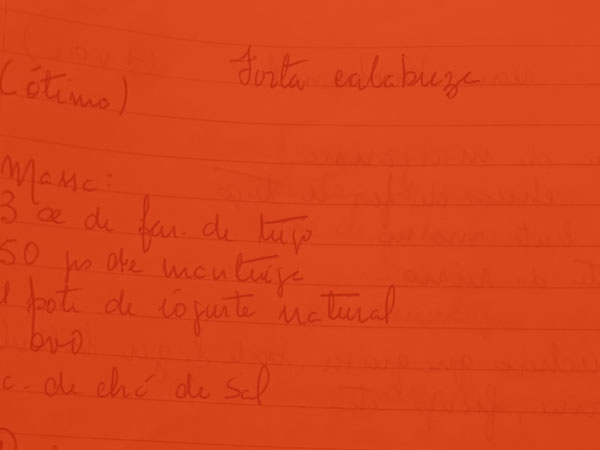 Torta calabreza
(ótimo)
Massa:
3 xc de far. de trigo
50 gs de manteiga
1 pote de iogurte natural
ovo
c. de chá de sal